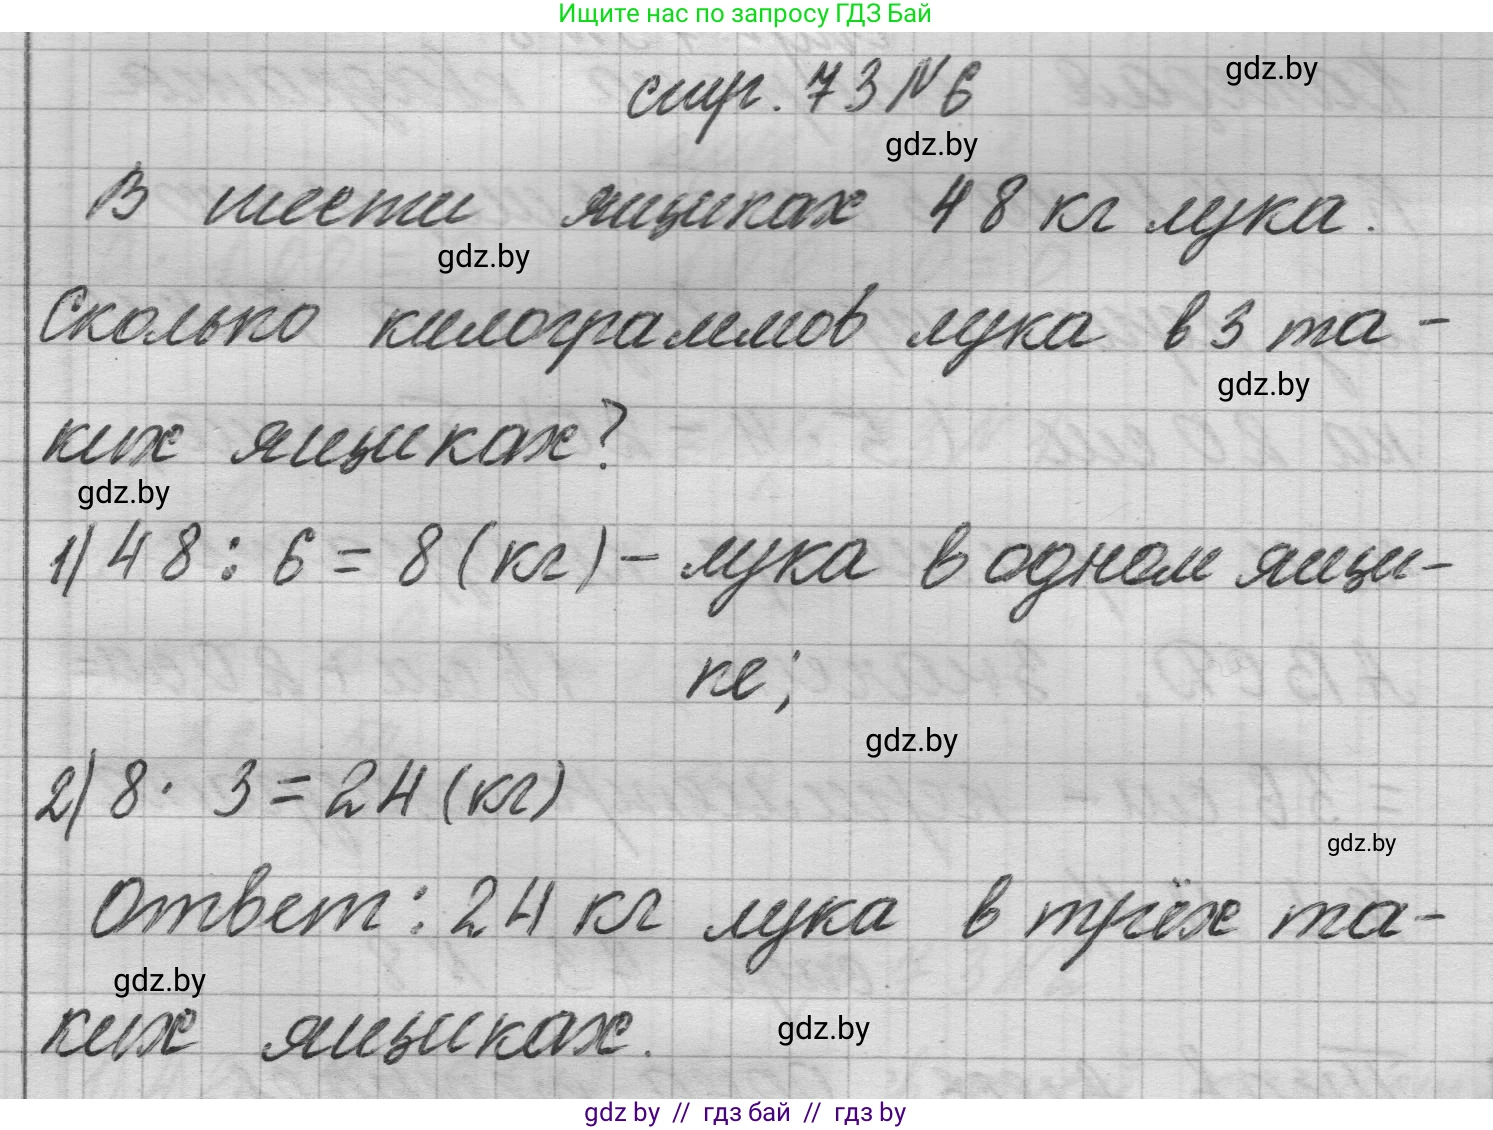 Ищите нас по запросу ГДЗ Бай
стр. 73 № 6
gdz.by
gdz.by
В шести ящиках 48 кг лука.
gdz.by
Сколько килограммов лука в 3 та-
gdz.by
ких ящиках?
gdz.by
1) 48 : 6 = 8 (кг) – лука в одном ящи-
ке;
gdz.by
2) 8 · 3 = 24 (кг)
gdz.by
Ответ: 24 кг лука в трёх та-
gdz.by
ких ящиках.
gdz.by
gdz by // гдз бай // гдз by